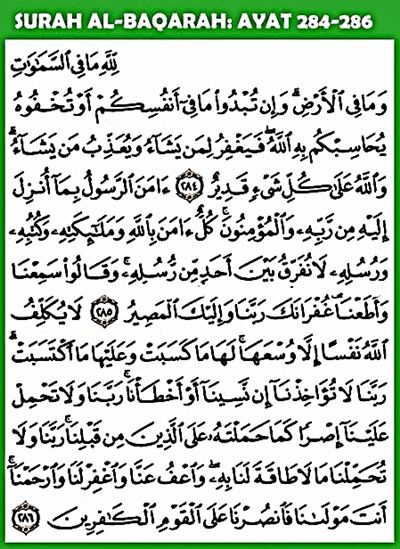 SURAH AL-BAQARAH: AYAT 284-286
لِلَّهِ مَا فِي السَّمَاوَاتِ
وَمَا فِي الْأَرْضِ ۗ وَإِن تُبْدُوا مَا فِي أَنفُسِكُمْ أَوْ تُخْفُوهُ
يُحَاسِبْكُم بِهِ اللَّهُ ۖ فَيَغْفِرُ لِمَن يَشَاءُ وَيُعَذِّبُ مَن يَشَاءُ ۗ
وَاللَّهُ عَلَىٰ كُلِّ شَيْءٍ قَدِيرٌ ٢٨٤ ءَامَنَ الرَّسُولُ بِمَا أُنزِلَ
إِلَيْهِ مِن رَّبِّهِ وَالْمُؤْمِنُونَ ۚ كُلٌّ ءَامَنَ بِاللَّهِ وَمَلَائِكَتِهِ وَكُتُبِهِ
وَرُسُلِهِ لَا نُفَرِّقُ بَيْنَ أَحَدٍ مِّن رُّسُلِهِ ۚ وَقَالُوا سَمِعْنَا
وَأَطَعْنَا ۖ غُفْرَانَكَ رَبَّنَا وَإِلَيْكَ الْمَصِيرُ ٢٨٥ لَا يُكَلِّفُ
اللَّهُ نَفْسًا إِلَّا وُسْعَهَا ۚ لَهَا مَا كَسَبَتْ وَعَلَيْهَا مَا اكْتَسَبَتْ ۗ
رَبَّنَا لَا تُؤَاخِذْنَا إِن نَّسِينَا أَوْ أَخْطَأْنَا ۚ رَبَّنَا وَلَا تَحْمِلْ
عَلَيْنَا إِصْرًا كَمَا حَمَلْتَهُ عَلَى الَّذِينَ مِن قَبْلِنَا ۚ رَبَّنَا وَلَا
تُحَمِّلْنَا مَا لَا طَاقَةَ لَنَا بِهِ ۖ وَاعْفُ عَنَّا وَاغْفِرْ لَنَا وَارْحَمْنَا ۚ
أَنتَ مَوْلَانَا فَانصُرْنَا عَلَى الْقَوْمِ الْكَافِرِينَ ٢٨٦